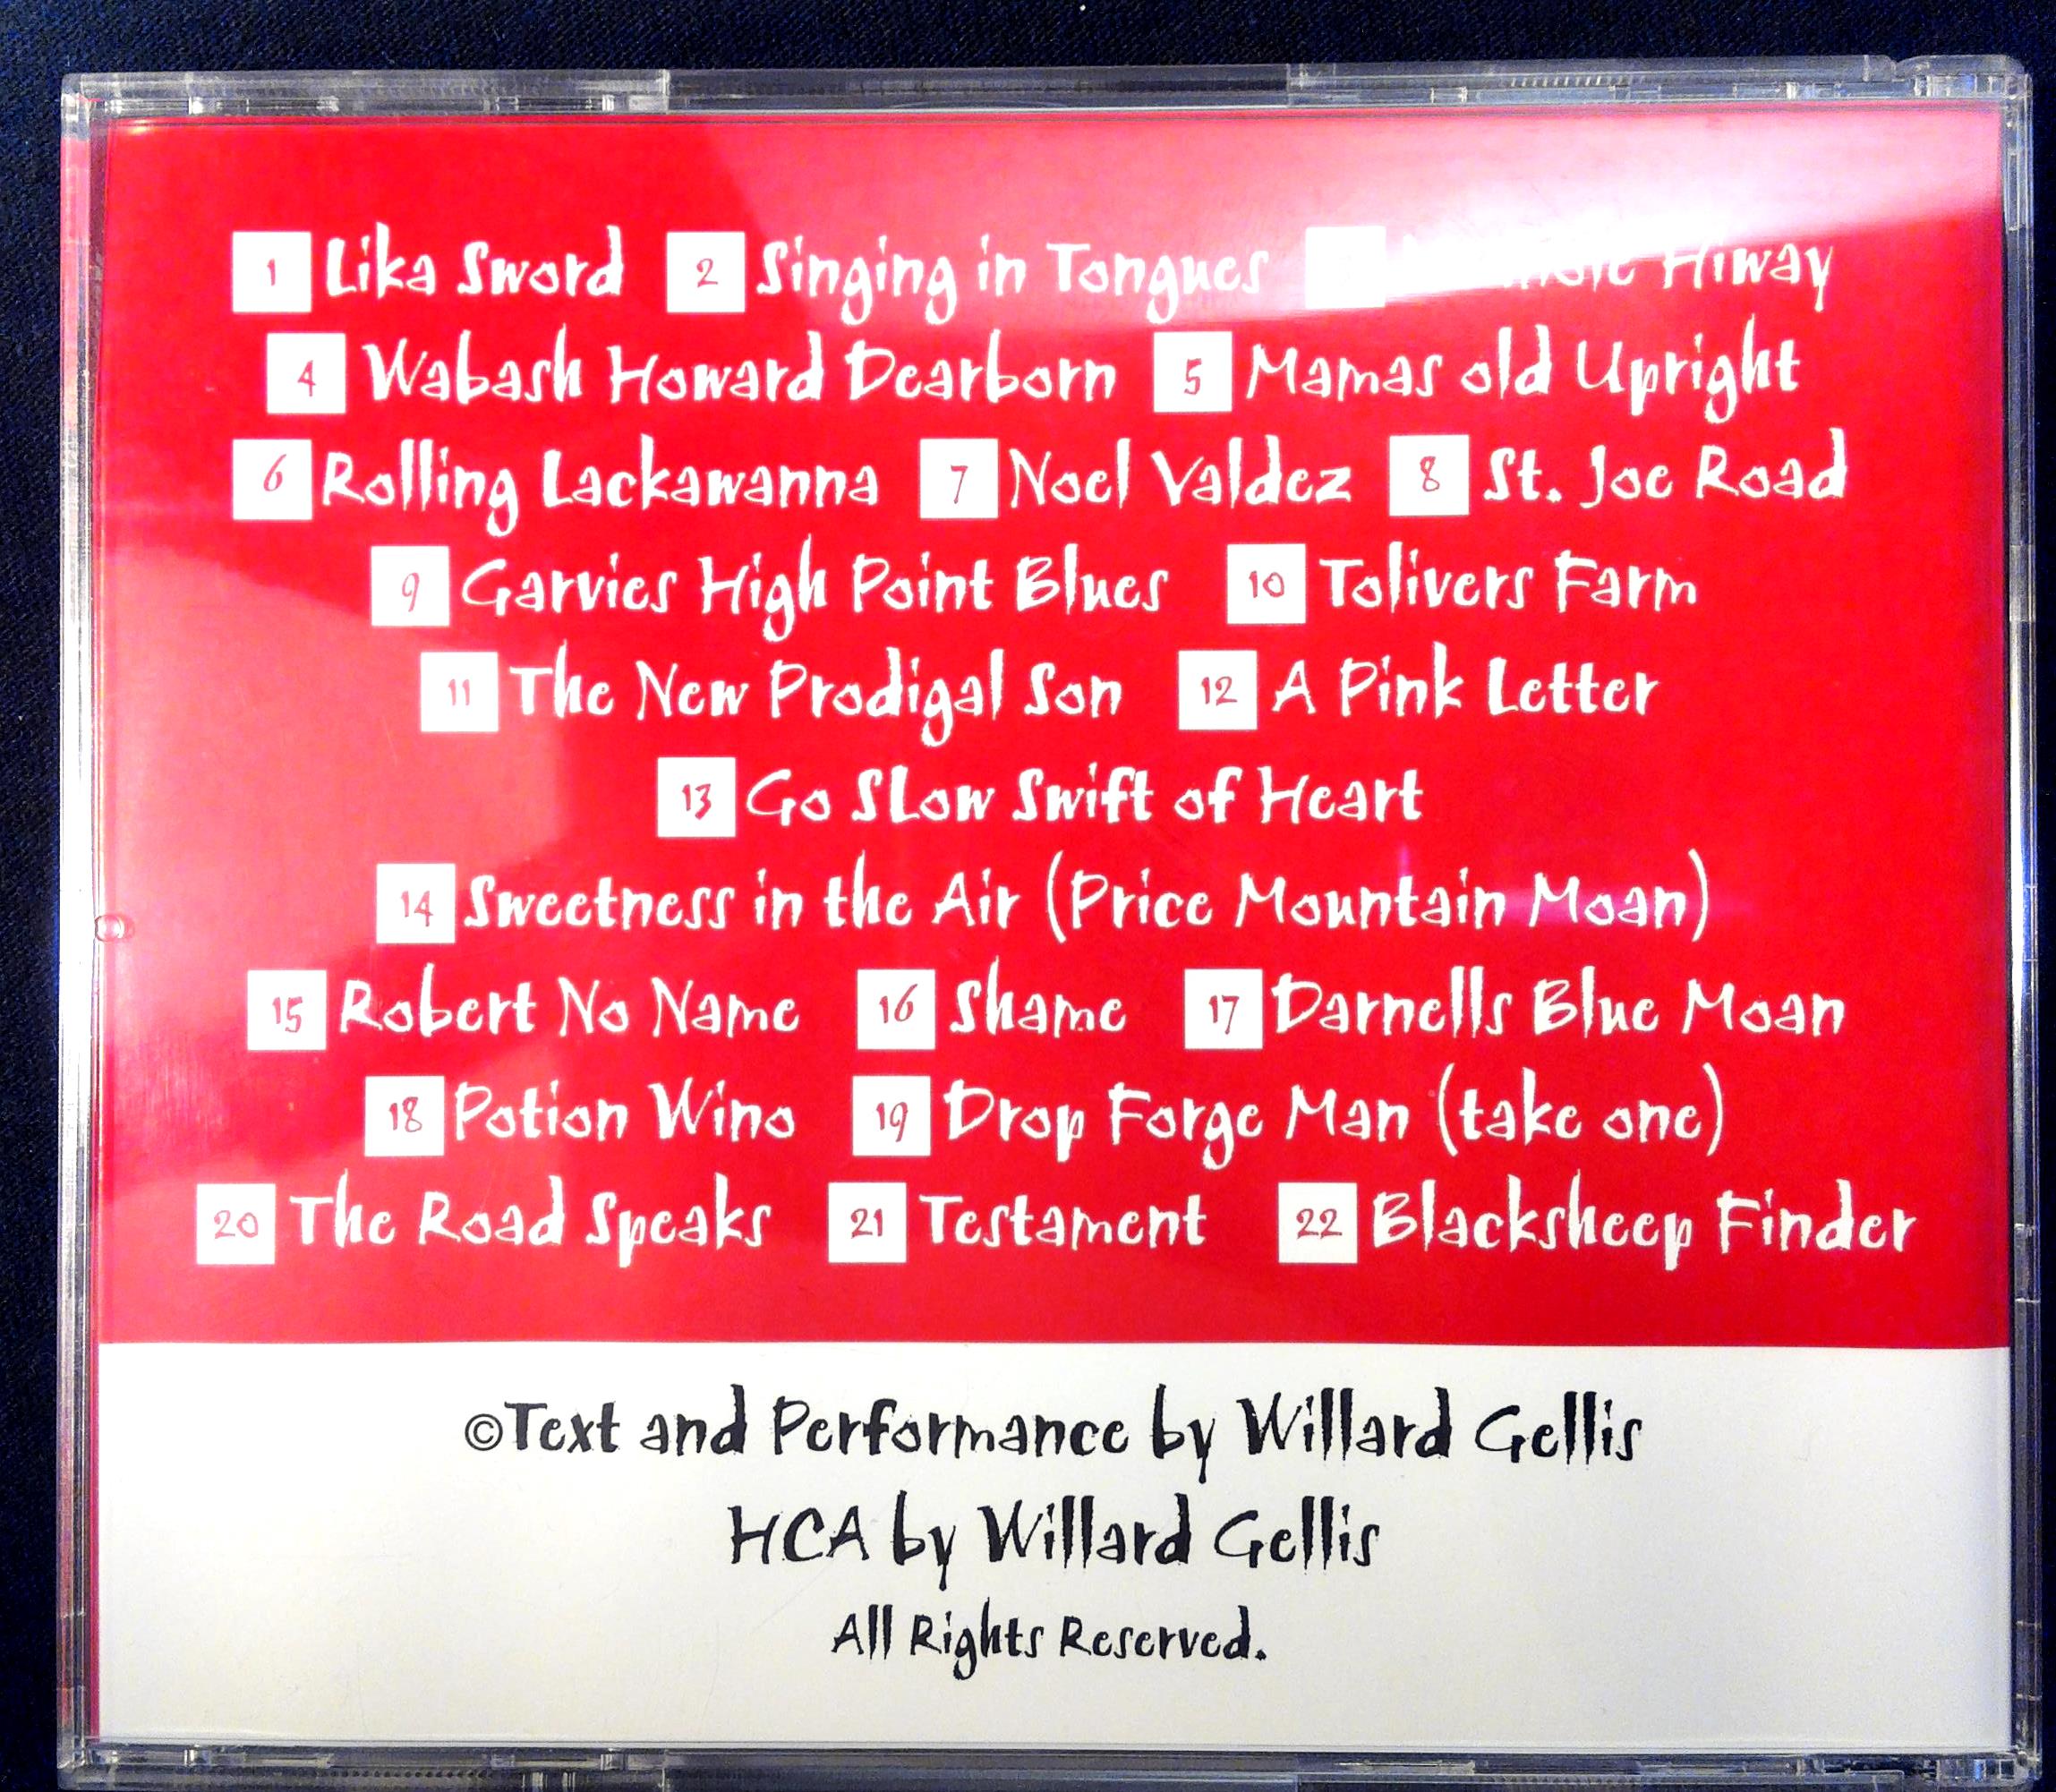 1 Lika Sword 2 Singing in Tongues Hiway
4 Wabash Howard Dearborn 5 Mamas old Upright
6 Rolling Lackawanna 7 Noel Valdez 8 St. Joe Road
9 Garvies High Point Blues 10 Tolivers Farm
11 The New Prodigal Son 12 A Pink Letter
13 Go SLow Swift of Heart
14 Sweetness in the Air (Price Mountain Moan)
15 Robert No Name 16 Shame 17 Darnells Blue Moan
18 Potion Wino 19 Drop Forge Man (take one)
20 The Road Speaks 21 Testament 22 Blacksheep Finder
©Text and Performance by Willard Gellis
HCA by Willard Gellis
All Rights Reserved.